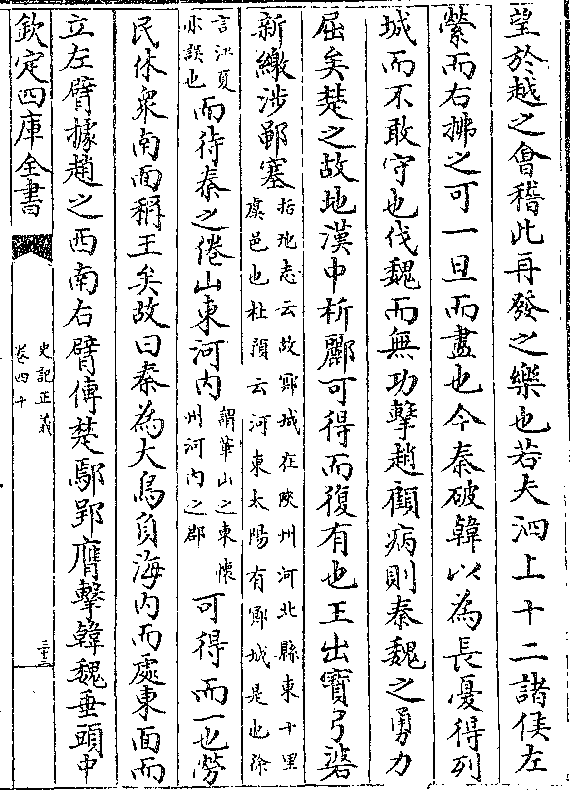 望於越之會稽此再發之樂也若夫泗上十二諸侯左
縈而右拂之可一旦而盡也今秦破韓以為長憂得列
城而不敢守也伐魏而無功擊趙顧病則秦魏之勇力
屈矣楚之故地漢中析酈可得而復有也王出寶弓碆
新繳涉鄳塞括地志云故鄳城在陜州河北縣東十里
虞邑也杜預云河東太陽有鄳城是也徐
言江夏
亦誤也而待秦之倦山東河内謂華山之東懷
州河内之郡可得而一也勞
民休衆南面稱王矣故曰秦為大鳥負海内而處東面而
立左臂據趙之西南右臂傅楚鄢郢膺擊韓魏垂頭中
欽定四庫全書
史記正義
卷四十
二十三